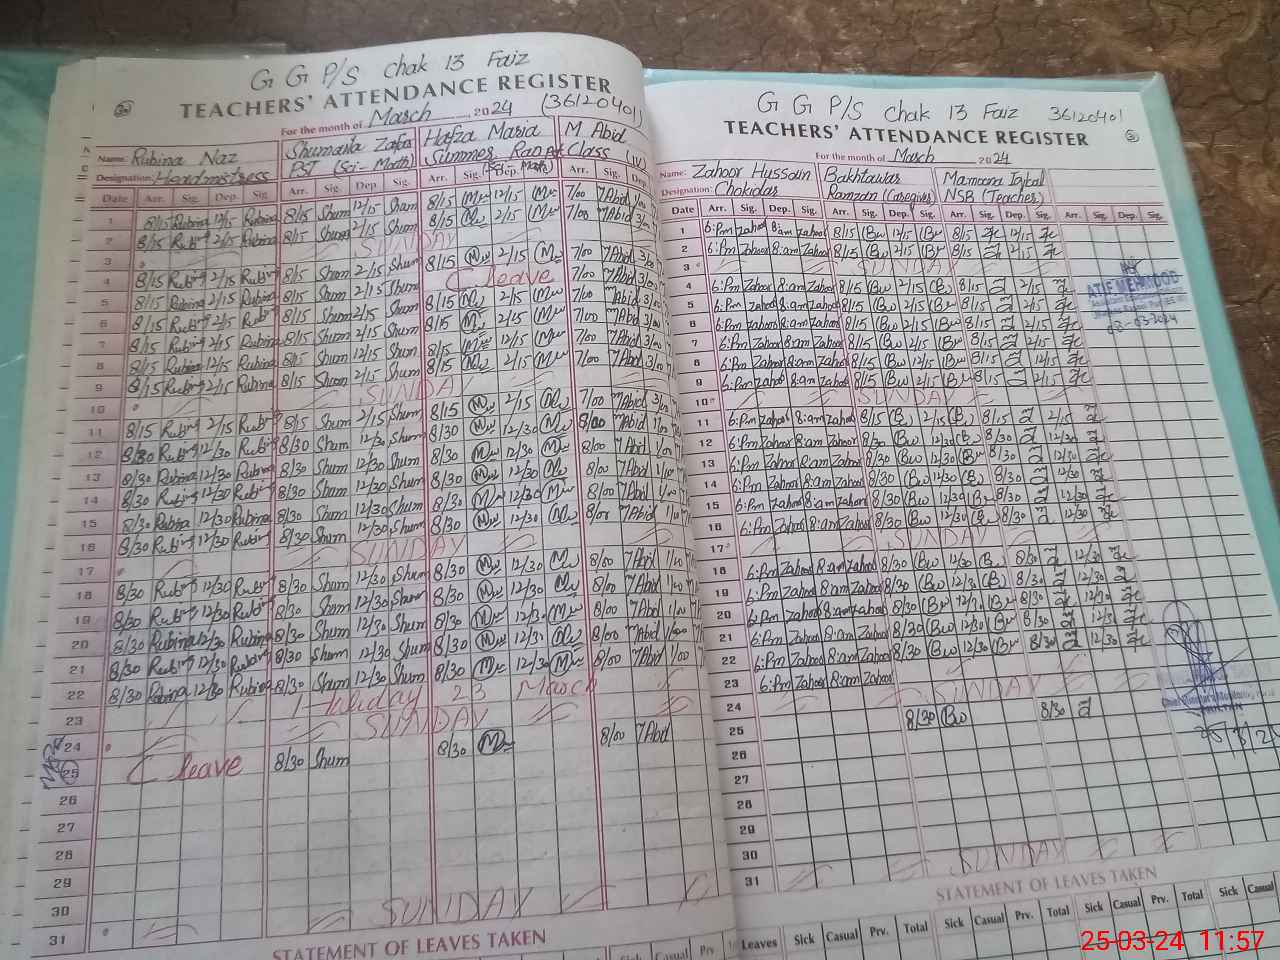 G G P/S Chak 13 Faiz
TEACHERS' ATTENDANCE REGISTER
For the month of March 2024 (36120401)
Name: Rubina Naz Shumaila Zafar Hafza Maria M Abid
Designation: Headmistress PST (Sci-Math) Class (IV)
Date Arr. Sig. Dep. Sig. Arr. Sig. Dep. Sig. Arr. Sig. Dep. Sig. Arr. Sig. Dep.
1 8/15 Rubina 12/15 Rubina 8/15 Shum 12/15 Shum 8/15 12/15 7/00 Abid
2 8/15 Rubina 2/15 Rubina 8/15 Shum 2/15 Shum 8/15 2/15 7/00 Abid
3 SUNDAY
4 8/15 Rubina 2/15 Rubina 8/15 Shum 2/15 Shum 8/15 2/15 7/00 Abid 3/00
5 8/15 Rubina 2/15 Rubina 8/15 Shum 2/15 Shum C leave 7/00 Abid 3/00
6 8/15 Rubina 2/15 Rubina 8/15 Shum 2/15 Shum 8/15 2/15 7/00 Abid 3/00
7 8/15 Rubina 2/15 Rubina 8/15 Shum 2/15 Shum 8/15 2/15 7/00 Abid 3/00
8 8/15 Rubina 12/15 Rubina 8/15 Shum 12/15 Shum 8/15 12/15 7/00 Abid
9 8/15 Rubina 2/15 Rubina 8/15 Shum 2/15 Shum 8/15 2/15 7/00 Abid 3/00
10 SUNDAY
11 8/15 Rubina 2/15 Rubina 8/15 Shum 2/15 Shum 8/15 2/15 7/00 Abid 3/00
12 8/30 Rubina 12/30 Rubina 8/30 Shum 12/30 Shum 8/30 12/30 8/00 Abid 1/00
13 8/30 Rubina 12/30 Rubina 8/30 Shum 12/30 Shum 8/30 12/30 8/00 Abid 1/00
14 8/30 Rubina 12/30 Rubina 8/30 Shum 12/30 Shum 8/30 12/30 8/00 Abid 1/00
15 8/30 Rubina 12/30 Rubina 8/30 Shum 12/30 Shum 8/30 12/30 8/00 Abid 1/00
16 8/30 Rubina 12/30 Rubina 8/30 Shum 12/30 Shum 8/30 12/30 8/00 Abid 1/00
17 SUNDAY
18 8/30 Rubina 12/30 Rubina 8/30 Shum 12/30 Shum 8/30 12/30 8/00 Abid 1/00
19 8/30 Rubina 12/30 Rubina 8/30 Shum 12/30 Shum 8/30 12/30 8/00 Abid 1/00
20 8/30 Rubina 12/30 Rubina 8/30 Shum 12/30 Shum 8/30 12/30 8/00 Abid 1/00
21 8/30 Rubina 12/30 Rubina 8/30 Shum 12/30 Shum 8/30 12/30 8/00 Abid 1/00
22 8/30 Rubina 12/30 Rubina 8/30 Shum 12/30 Shum 8/30 12/30 8/00 Abid 1/00
23 Holiday 23 March
24 SUNDAY
25 C leave 8/30 Shum 8/30 8/00 Abid
26
27
28
29
30
31 SUNDAY
STATEMENT OF LEAVES TAKEN
Sick Casual Prv
G G P/S Chak 13 Faiz 36120401
TEACHERS' ATTENDANCE REGISTER
For the month of March 2024
Name: Zahoor Hussain Bakhtawar Mamoona Iqbal
Designation: Chokidar Ramzan (Caregiver) NSB (Teacher)
Date Arr. Sig. Dep. Sig. Arr. Sig. Dep. Sig. Arr. Sig. Dep. Sig. Arr. Sig. Dep. Sig.
1 6:Pm Zahoor 8:am Zahoor 8/15 Bw 12/15 Bw 8/15 12/15
2 6:Pm Zahoor 8:am Zahoor 8/15 Bw 2/15 Bw 8/15 2/15
3 SUNDAY
4 6:Pm Zahoor 8:am Zahoor 8/15 Bw 2/15 8/15 2/15
5 6:Pm Zahoor 8:am Zahoor 8/15 Bw 2/15 Bw 8/15 2/15
6 6:Pm Zahoor 8:am Zahoor 8/15 Bw 2/15 Bw 8/15 2/15
7 6:Pm Zahoor 8:am Zahoor 8/15 Bw 2/15 Bw 8/15 2/15
8 6:Pm Zahoor 8:am Zahoor 8/15 Bw 12/15 Bw 8/15 12/15
9 6:Pm Zahoor 8:am Zahoor 8/15 Bw 2/15 Bw 8/15 2/15
10 SUNDAY
11 6:Pm Zahoor 8:am Zahoor 8/15 2/15 8/15 2/15
12 6:Pm Zahoor 8:am Zahoor 8/30 Bw 12/30 8/30 12/30
13 6:Pm Zahoor 8:am Zahoor 8/30 Bw 12/30 Bw 8/30 12/30
14 6:Pm Zahoor 8:am Zahoor 8/30 Bw 12/30 8/30 12/30
15 6:Pm Zahoor 8:am Zahoor 8/30 Bw 12/30 Bw 8/30 12/30
16 6:Pm Zahoor 8:am Zahoor 8/30 Bw 12/30 8/30 12/30
17 SUNDAY
18 6:Pm Zahoor 8:am Zahoor 8/30 Bw 12/30 Bw 8/30 12/30
19 6:Pm Zahoor 8:am Zahoor 8/30 Bw 12/30 8/30 12/30
20 6:Pm Zahoor 8:am Zahoor 8/30 Bw 12/30 Bw 8/30 12/30
21 6:Pm Zahoor 8:am Zahoor 8/30 Bw 12/30 Bw 8/30 12/30
22 6:Pm Zahoor 8:am Zahoor 8/30 Bw 12/30 Bw 8/30 12/30
23 6:Pm Zahoor 8:am Zahoor
24 SUNDAY
25 8/30 Bw 8/30
26
27
28
29
30
31 SUNDAY
STATEMENT OF LEAVES TAKEN
Leaves Sick Casual Prv. Total Sick Casual Prv. Total Sick Casual Prv. Total Sick Casual
ATIF MEHMOOD
08-03-2024
25-03-24 11:57